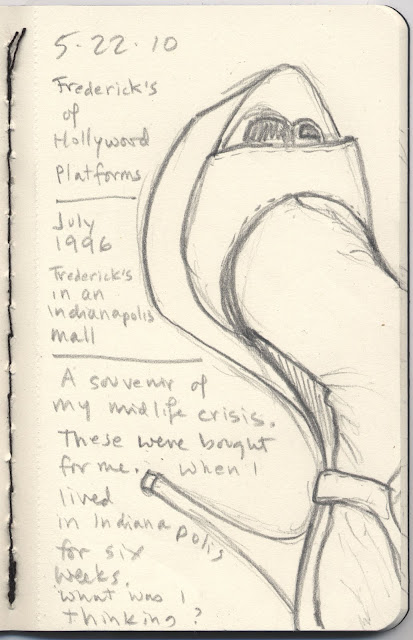 5·22·10
Frederick's
of
Hollywood
Platforms
July
1996
Frederick's
in an
Indianapolis
mall
A souvenir of
my midlife crisis.
These were bought
for me... when I
lived
in Indianapolis
for six
weeks.
What was I
thinking?